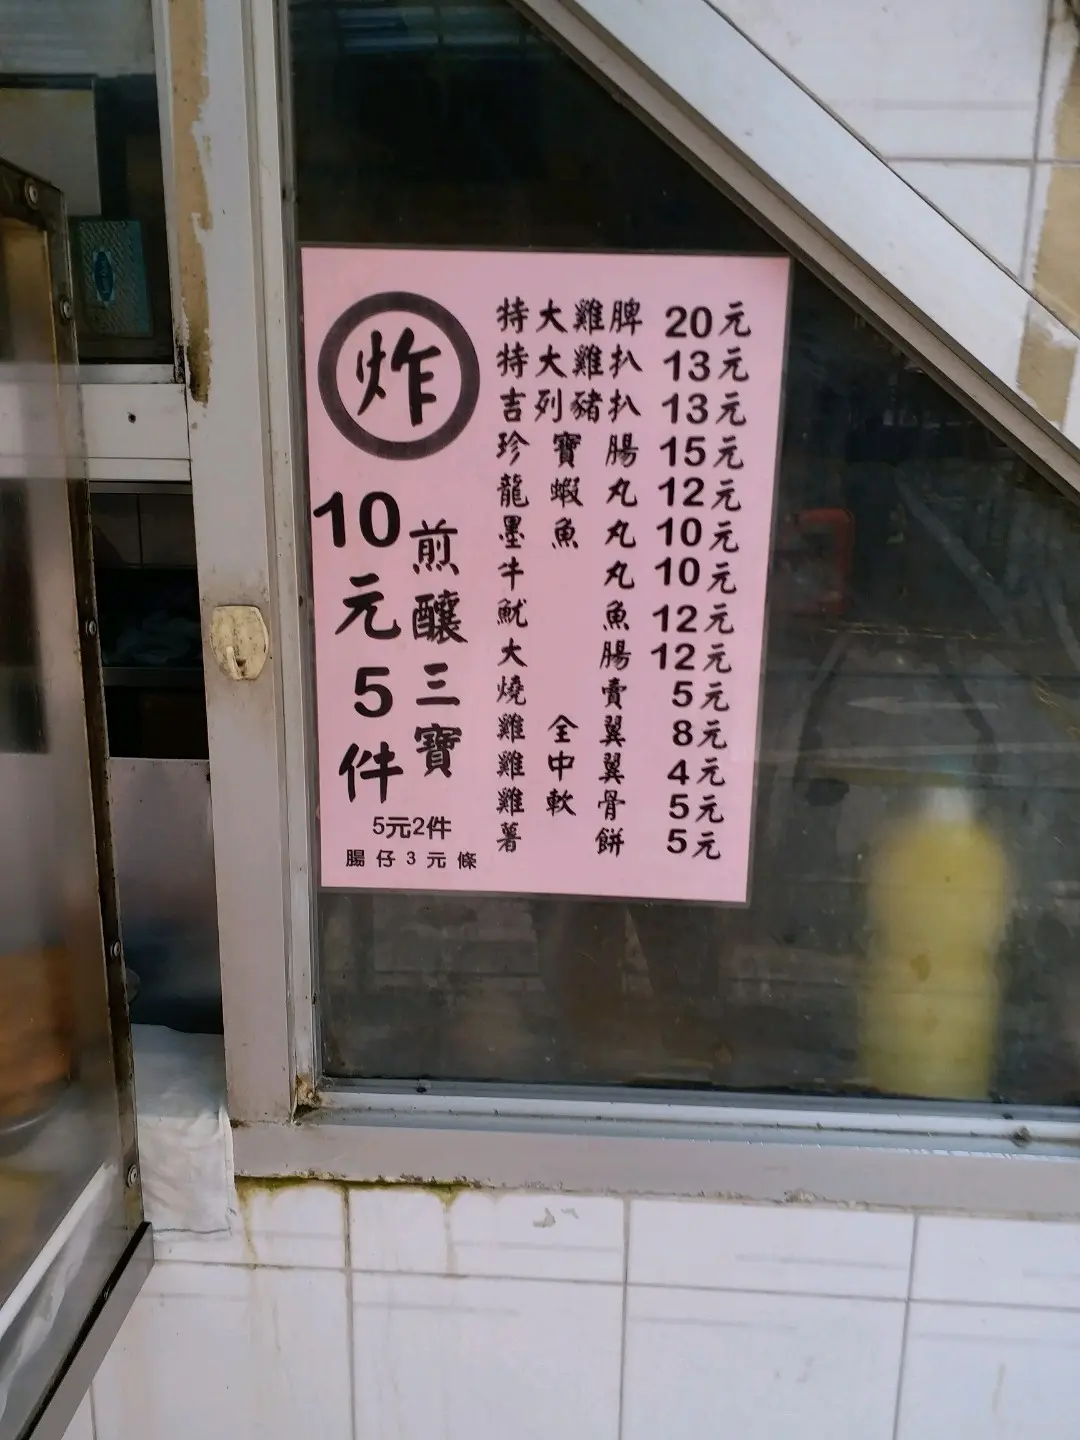 炸
煎釀三寶
10元5件
5元2件
腸仔3元條
特大雞脾 20元
特大雞扒 13元
吉列豬扒 13元
珍寶腸 15元
龍蝦丸 12元
墨魚丸 10元
牛丸 10元
魷魚 12元
大腸 12元
燒賣 5元
雞全翼 8元
雞中翼 4元
雞軟骨 5元
薯餅 5元